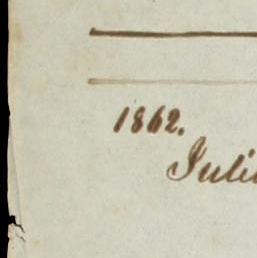 1862.
Juli